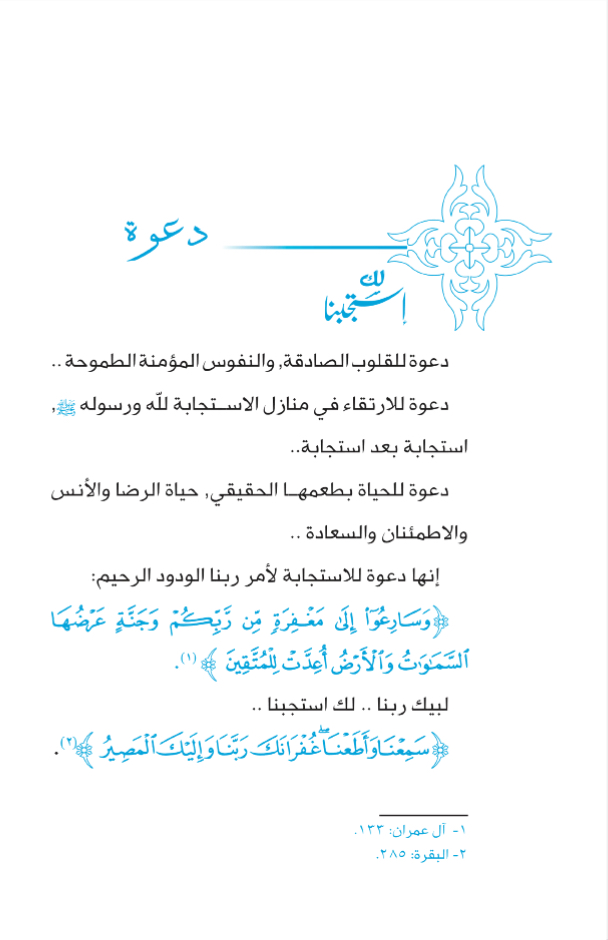 دعوة
لك
إستجبنا
دعوة للقلوب الصادقة, والنفوس المؤمنة الطموحة ..
دعوة للارتقاء في منازل الاستجابة لله ورسوله ﷺ,
استجابة بعد استجابة..
دعوة للحياة بطعمها الحقيقي, حياة الرضا والأنس
والاطمئنان والسعادة ..
إنها دعوة للاستجابة لأمر ربنا الودود الرحيم:
﴿وَسَارِعُوٓاْ إِلَىٰ مَغۡفِرَةٖ مِّن رَّبِّكُمۡ وَجَنَّةٍ عَرۡضُهَا
ٱلسَّمَٰوَٰتُ وَٱلۡأَرۡضُ أُعِدَّتۡ لِلۡمُتَّقِينَ﴾ (١).
لبيك ربنا .. لك استجبنا ..
﴿سَمِعۡنَا وَأَطَعۡنَاۖ غُفۡرَانَكَ رَبَّنَا وَإِلَيۡكَ ٱلۡمَصِيرُ﴾(٢).
١- آل عمران: ١٣٣.
٢- البقرة: ٢٨٥.